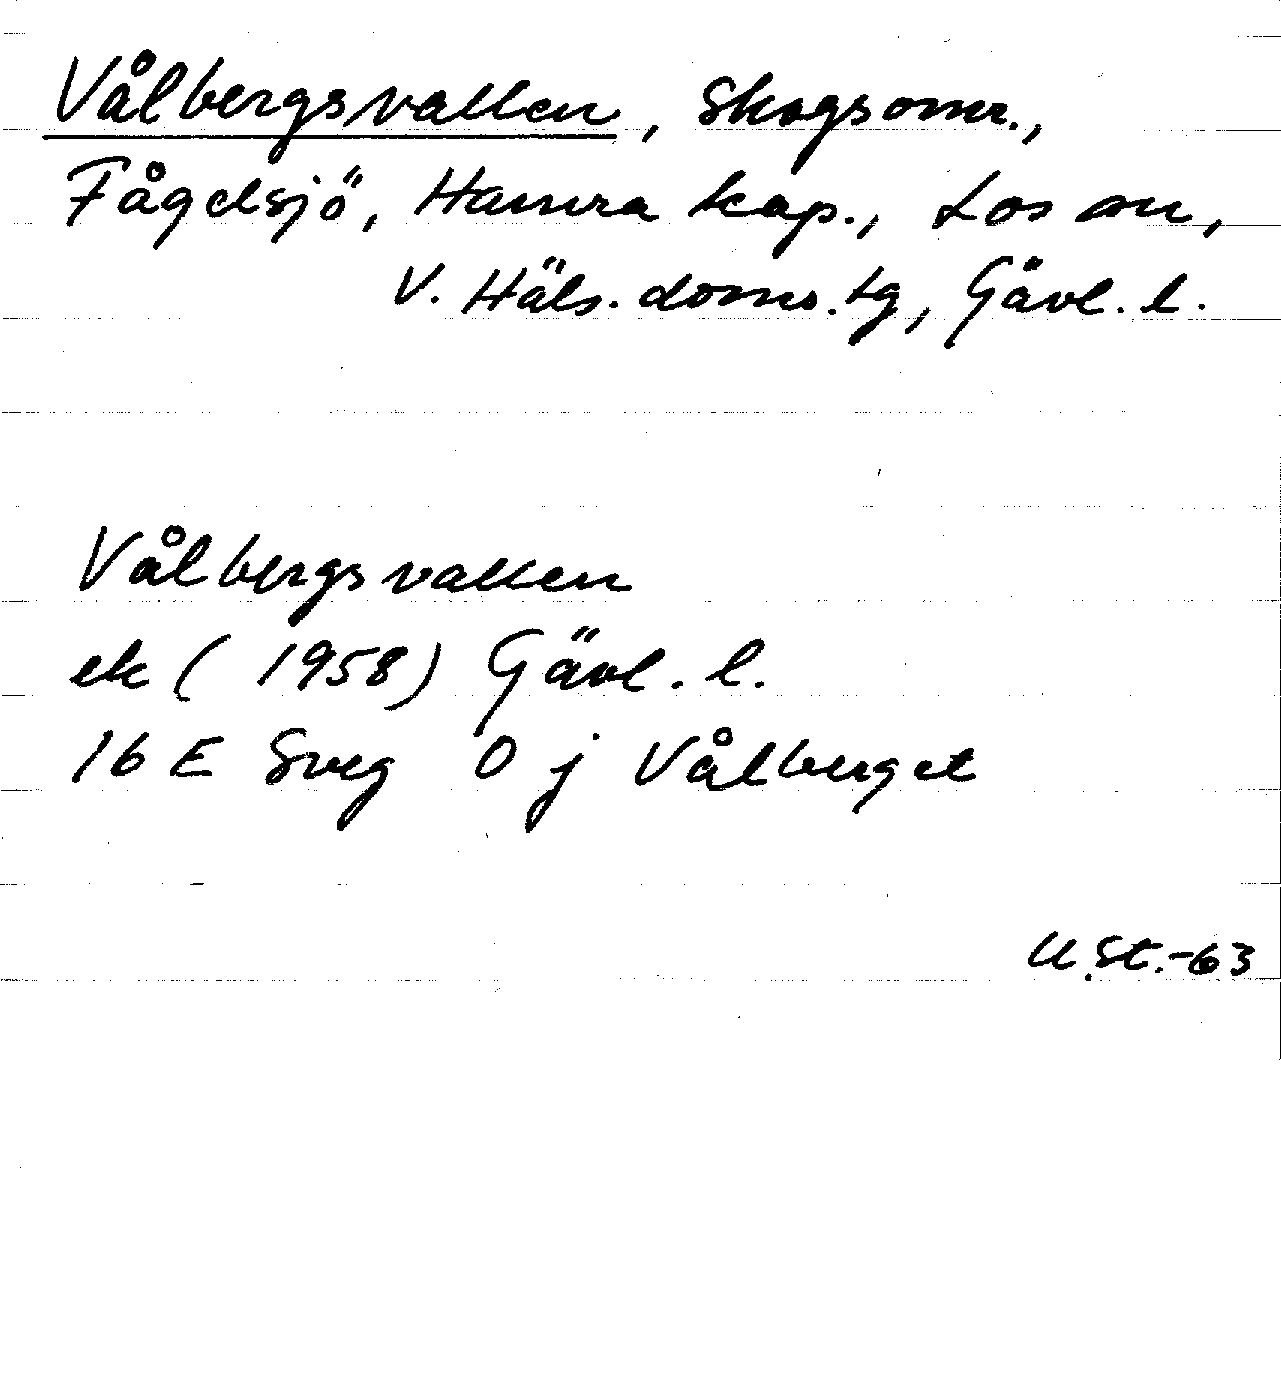 Vålbergsvallen, Skogsomr.,
Fågelsjö, Hamra kap., Los sn,
V. Häls. doms. tg, Gävl. l.
Vålbergsvallen
ek (1958) Gävl. l.
16 E Sveg 0 j Vålberget
U.St.-63